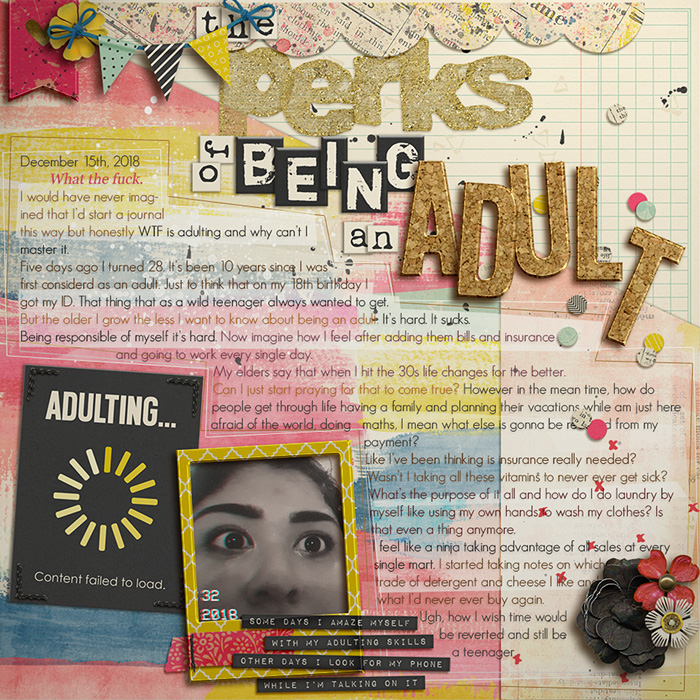 the
perks
of BEING
an ADULT
December 15th, 2018
What the fuck.
I would have never imag-
ined that I'd start a journal
this way but honestly WTF is adulting and why can't I
master it.
Five days ago I turned 28. It's been 10 years since I was
first considerd as an adult. Just to think that on my 18th birthday I
got my ID. That thing that as a wild teenager always wanted to get.
But the older I grow the less I want to know about being an adult. It's hard. It sucks.
Being responsible of myself it's hard. Now imagine how I feel after adding them bills and insurance
and going to work every single day.
My elders say that when I hit the 30s life changes for the better.
Can I just start praying for that to come true? However in the mean time, how do
people get through life having a family and planning their vacations while am just here
afraid of the world, doing maths, I mean what else is gonna be from my
payment?
Like I've been thinking is insurance really needed?
Wasn't I taking all these vitamins to never ever get sick?
What's the purpose of it all and how do I do laundry by
myself like using my own hands to wash my clothes? Is
that even a thing anymore.
I feel like a ninja taking advantage of all sales at every
single mart. I started taking notes on which
trade of detergent and cheese I like and
what I'd never ever buy again.
Ugh, how I wish time would
be reverted and still be
a teenager
ADULTING...
Content failed to load.
32
2018
SOME DAYS I AMAZE MYSELF
WITH MY ADULTING SKILLS
OTHER DAYS I LOOK FOR MY PHONE
WHILE I'M TALKING ON IT